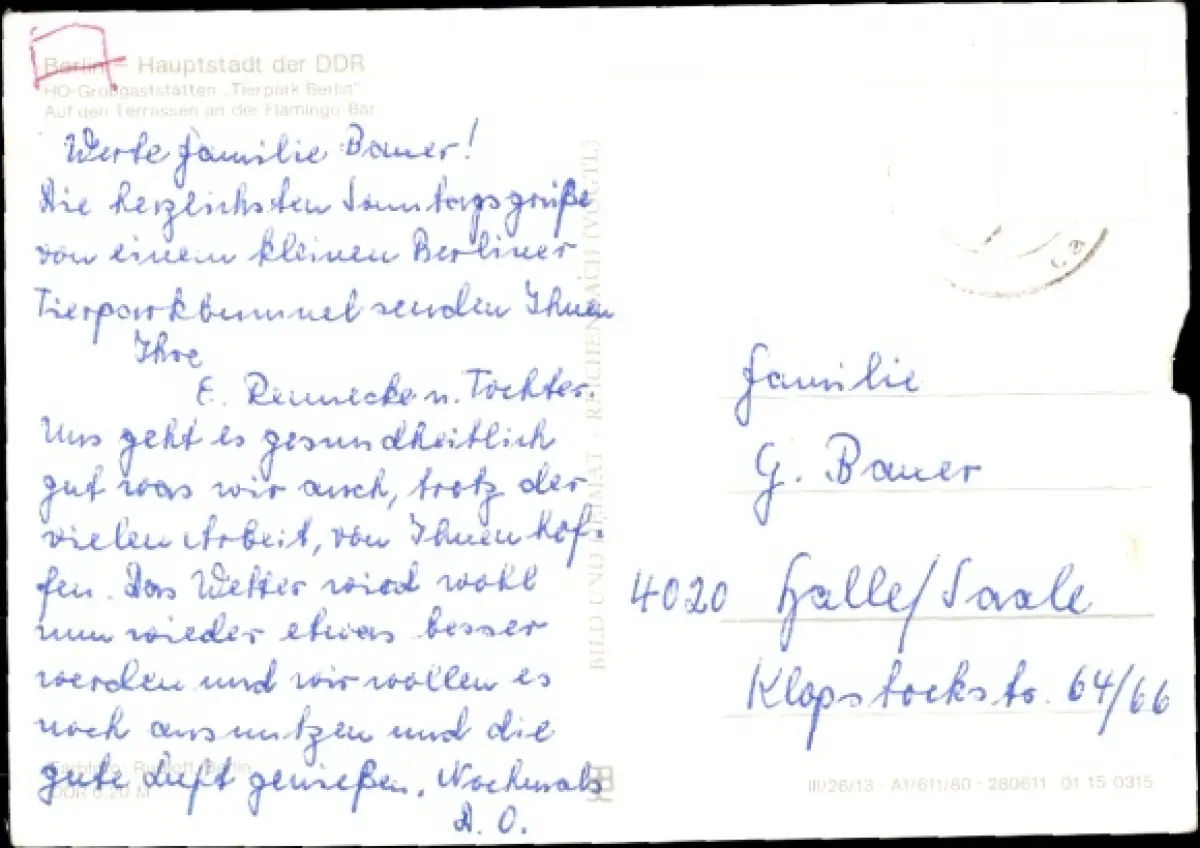 Berlin – Hauptstadt der DDR
HO-Großgaststätten „Tierpark Berlin"
Auf den Terrassen an der Flamingo-Bar
Werte Familie Bauer!
Die herzlichsten Sonntagsgrüße
von einem kleinen Berliner
Tierparkbummel senden Ihnen
Ihre
E. Rennecke u. Tochter.
Uns geht es gesundheitlich
gut was wir auch, trotz der
vielen Arbeit, von Ihnen hof-
fen. Das Wetter wird wohl
nun wieder etwas besser
werden und wir wollen es
noch ausnutzen und die
gute Luft genießen. Nochmals
D. O.
Farbfoto: Rudolf, Berlin
DDR 0,20 M
BILD UND HEIMAT · REICHENBACH (VOGTL)
Familie
G. Bauer
4020 Halle/Saale
Klopstockstr. 64/66
III/26/13 · A1/611/80 · 280611 01 15 0315